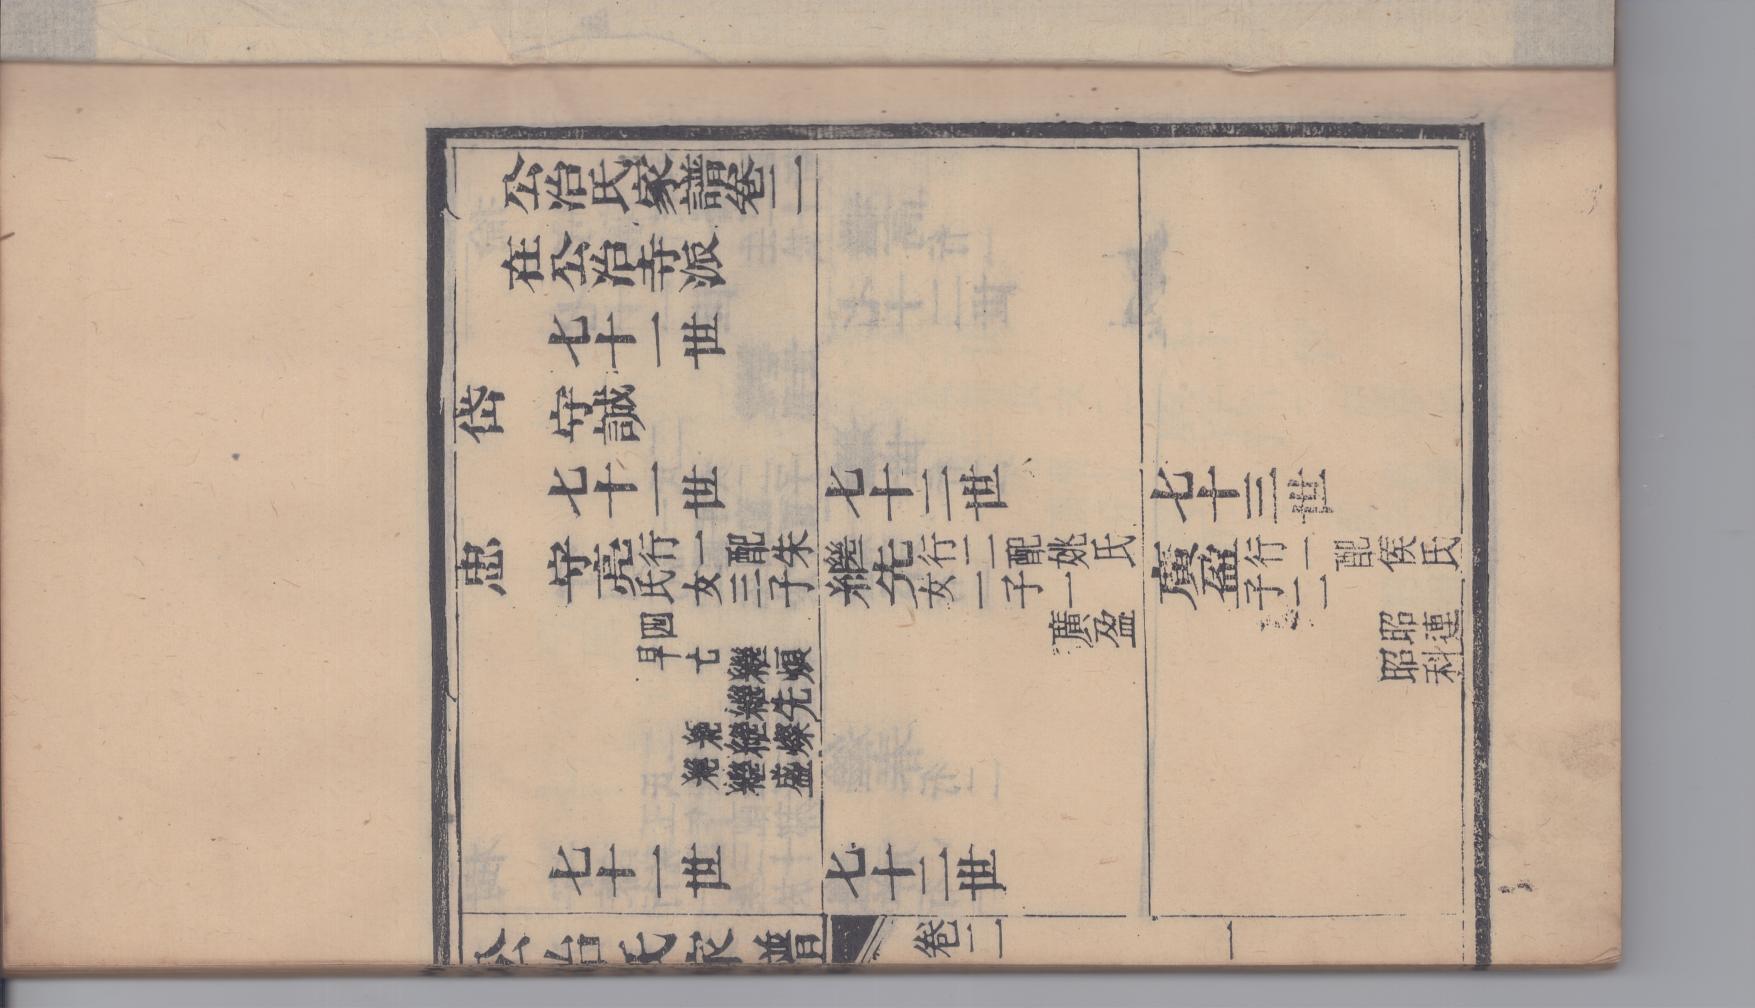 公冶氏家譜卷二
在公冶寺派
七十一世
岱 守誠
七十一世 七十二世 七十三世
忠 守亮 行一 配朱
氏 女三 子
四 早七
繼先 行二 配姚氏
女一 子一
廣盈
廣盈 行一 配侯氏
子二
昭連
昭科
七十一世 七十二世
公冶氏家譜 卷二 一